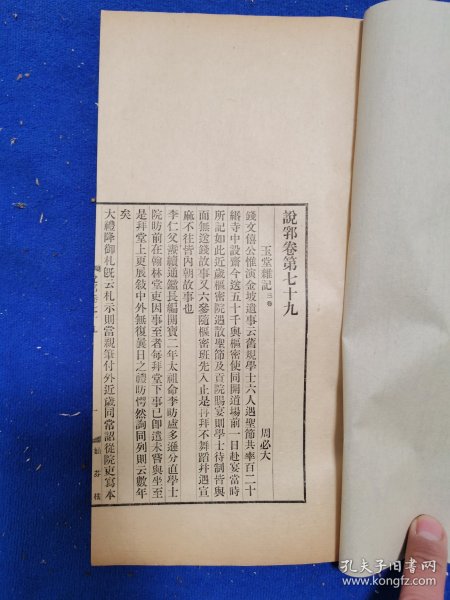 說郛卷第七十九
玉堂雜記 三卷 周必大
錢文僖公惟演金坡遺事云舊規學士六人遇聖節共率百二十
緡寺中設齋今送五十千與樞密使同開道場前一日赴宴當時
所記如此近歲樞密院遇散聖節及貢院賜宴則學士待制皆與
而無送錢故事又六參隨樞密班先入止是再拜不舞蹈幷遇宣
麻不往皆內朝故事也
李仁父燾續通鑑長編開寶二年太祖命李昉盧多遜分直學士
院昉前在翰林堂吏因事至者每拜堂下事已卽遣未嘗與坐至
是拜堂上更展敍中外無復曩日之禮昉愕然詢同列則云數年
矣
大禮降御札旣云札示則當親筆付外近歲同常詔從院吏寫本
孔夫子旧书网
www.kongfz.com